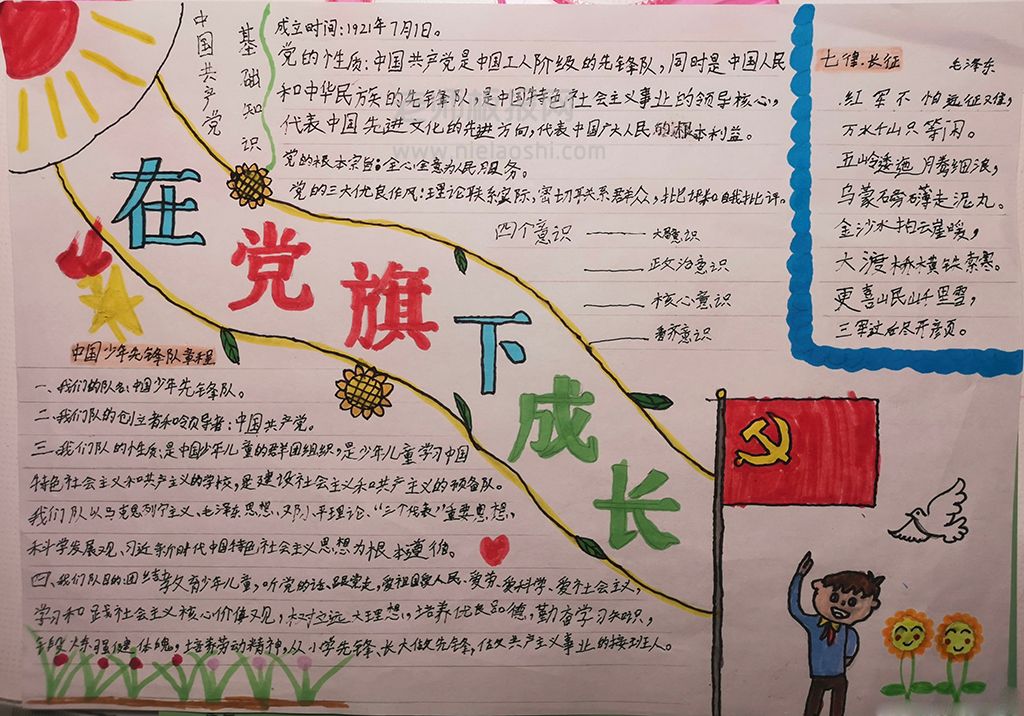 中国共产党
基础知识
成立时间:1921年7月1日。
党的性质:中国共产党是中国工人阶级的先锋队,同时是中国人民
和中华民族的先锋队,是中国特色社会主义事业的领导核心,
代表中国先进文化的先进方向,代表中国广大人民的根本利益。
党的根本宗旨:全心全意为人民服务。
党的三大优良作风:理论联系实际、密切联系群众,批评和自我批评。
四个意识
大局意识
政治意识
核心意识
看齐意识
老师板报网
www.nielaoshi.com
七律·长征
毛泽东
红军不怕远征难,
万水千山只等闲。
五岭逶迤腾细浪,
乌蒙磅礴走泥丸。
金沙水拍云崖暖,
大渡桥横铁索寒。
更喜岷山千里雪,
三军过后尽开颜。
在党旗下成长
中国少年先锋队章程
一、我们的队名:中国少年先锋队。
二、我们队的创立者和领导者:中国共产党。
三、我们队的性质:是中国少年儿童的群团组织,是少年儿童学习中国
特色社会主义和共产主义的学校,是建设社会主义和共产主义的预备队。
我们队以马克思列宁主义、毛泽东思想、邓小平理论、“三个代表”重要思想、
科学发展观、习近平新时代中国特色社会主义思想为根本遵循。
四、我们队目的:团结教育少年儿童,听党的话、跟党走,爱祖国爱人民、爱劳、爱科学、爱社会主义,
学习和践社会主义核心价值观,树立远大理想,培养优良品德,勤奋学习知识,
锻炼强健体魄,培养劳动精神,从小学先锋、长大做先锋,做共产主义事业的接班人。